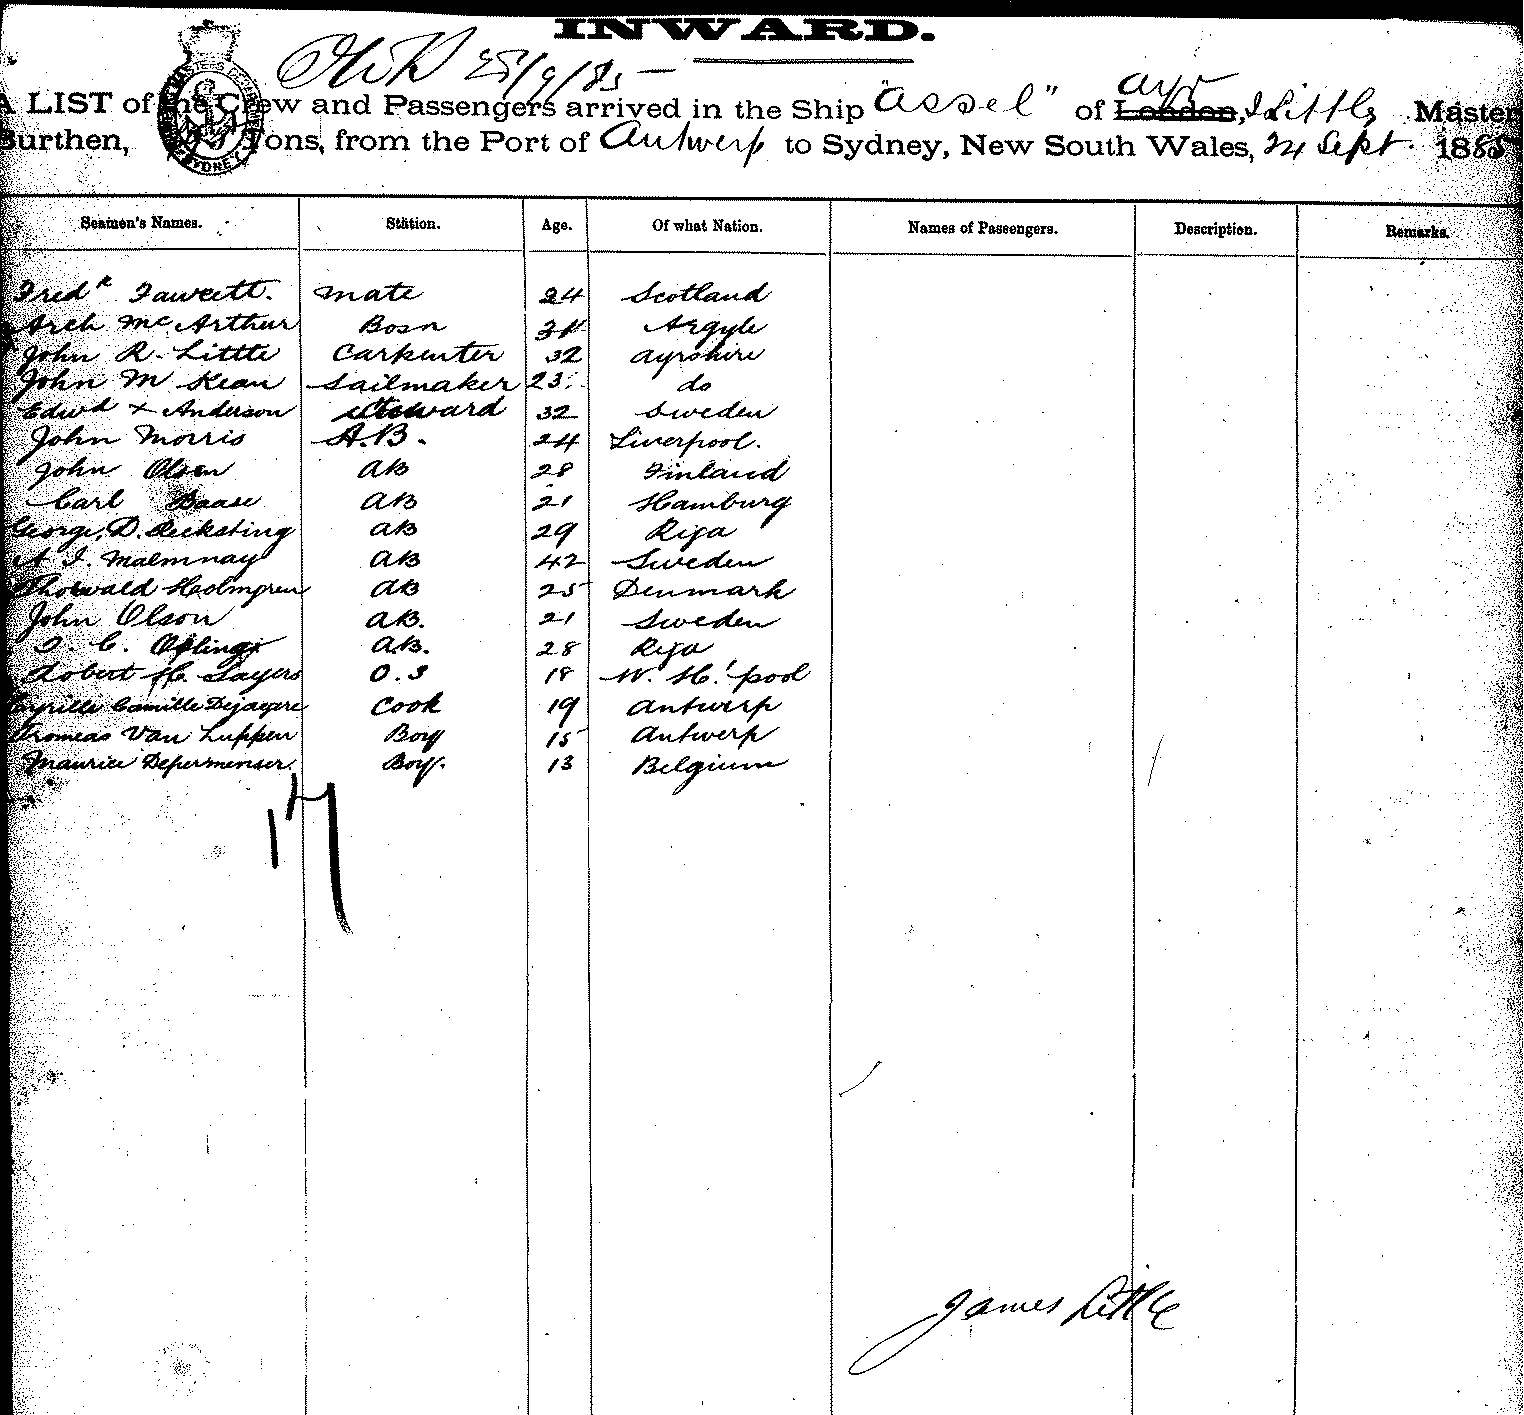 INWARD.
25/9/85
A LIST of the Crew and Passengers arrived in the Ship "Assel" of Ayr London, J Little Master
Burthen, Tons, from the Port of Antwerp to Sydney, New South Wales, 24 Sept 1885
Seamen's Names. Station. Age. Of what Nation. Names of Passengers. Description. Remarks.
Fredk Fawcett. Mate 24 Scotland
Arch McArthur Bosn Argyle
John R. Little Carpenter 32 Ayrshire
John M Kean Sailmaker 23 do
Edwd + Anderson Steward 32 Sweden
John Morris A.B. 24 Liverpool.
John Olsen AB 28 Finland
Carl Baase AB 21 Hamburg
George D. Recksting AB 29 Riga
A I. Malmnay AB 42 Sweden
Thorwald Holmgren AB 25 Denmark
John Olson AB. 21 Sweden
C. AB. 28 Riga
Robert H. Sayers O.S 18 W. H.'pool
Cyrille Camille Dejaegere Cook 19 Antwerp
Van Luppen Boy 15 Antwerp
Maurice Depermenser. Boy. 13 Belgium
17
James Little